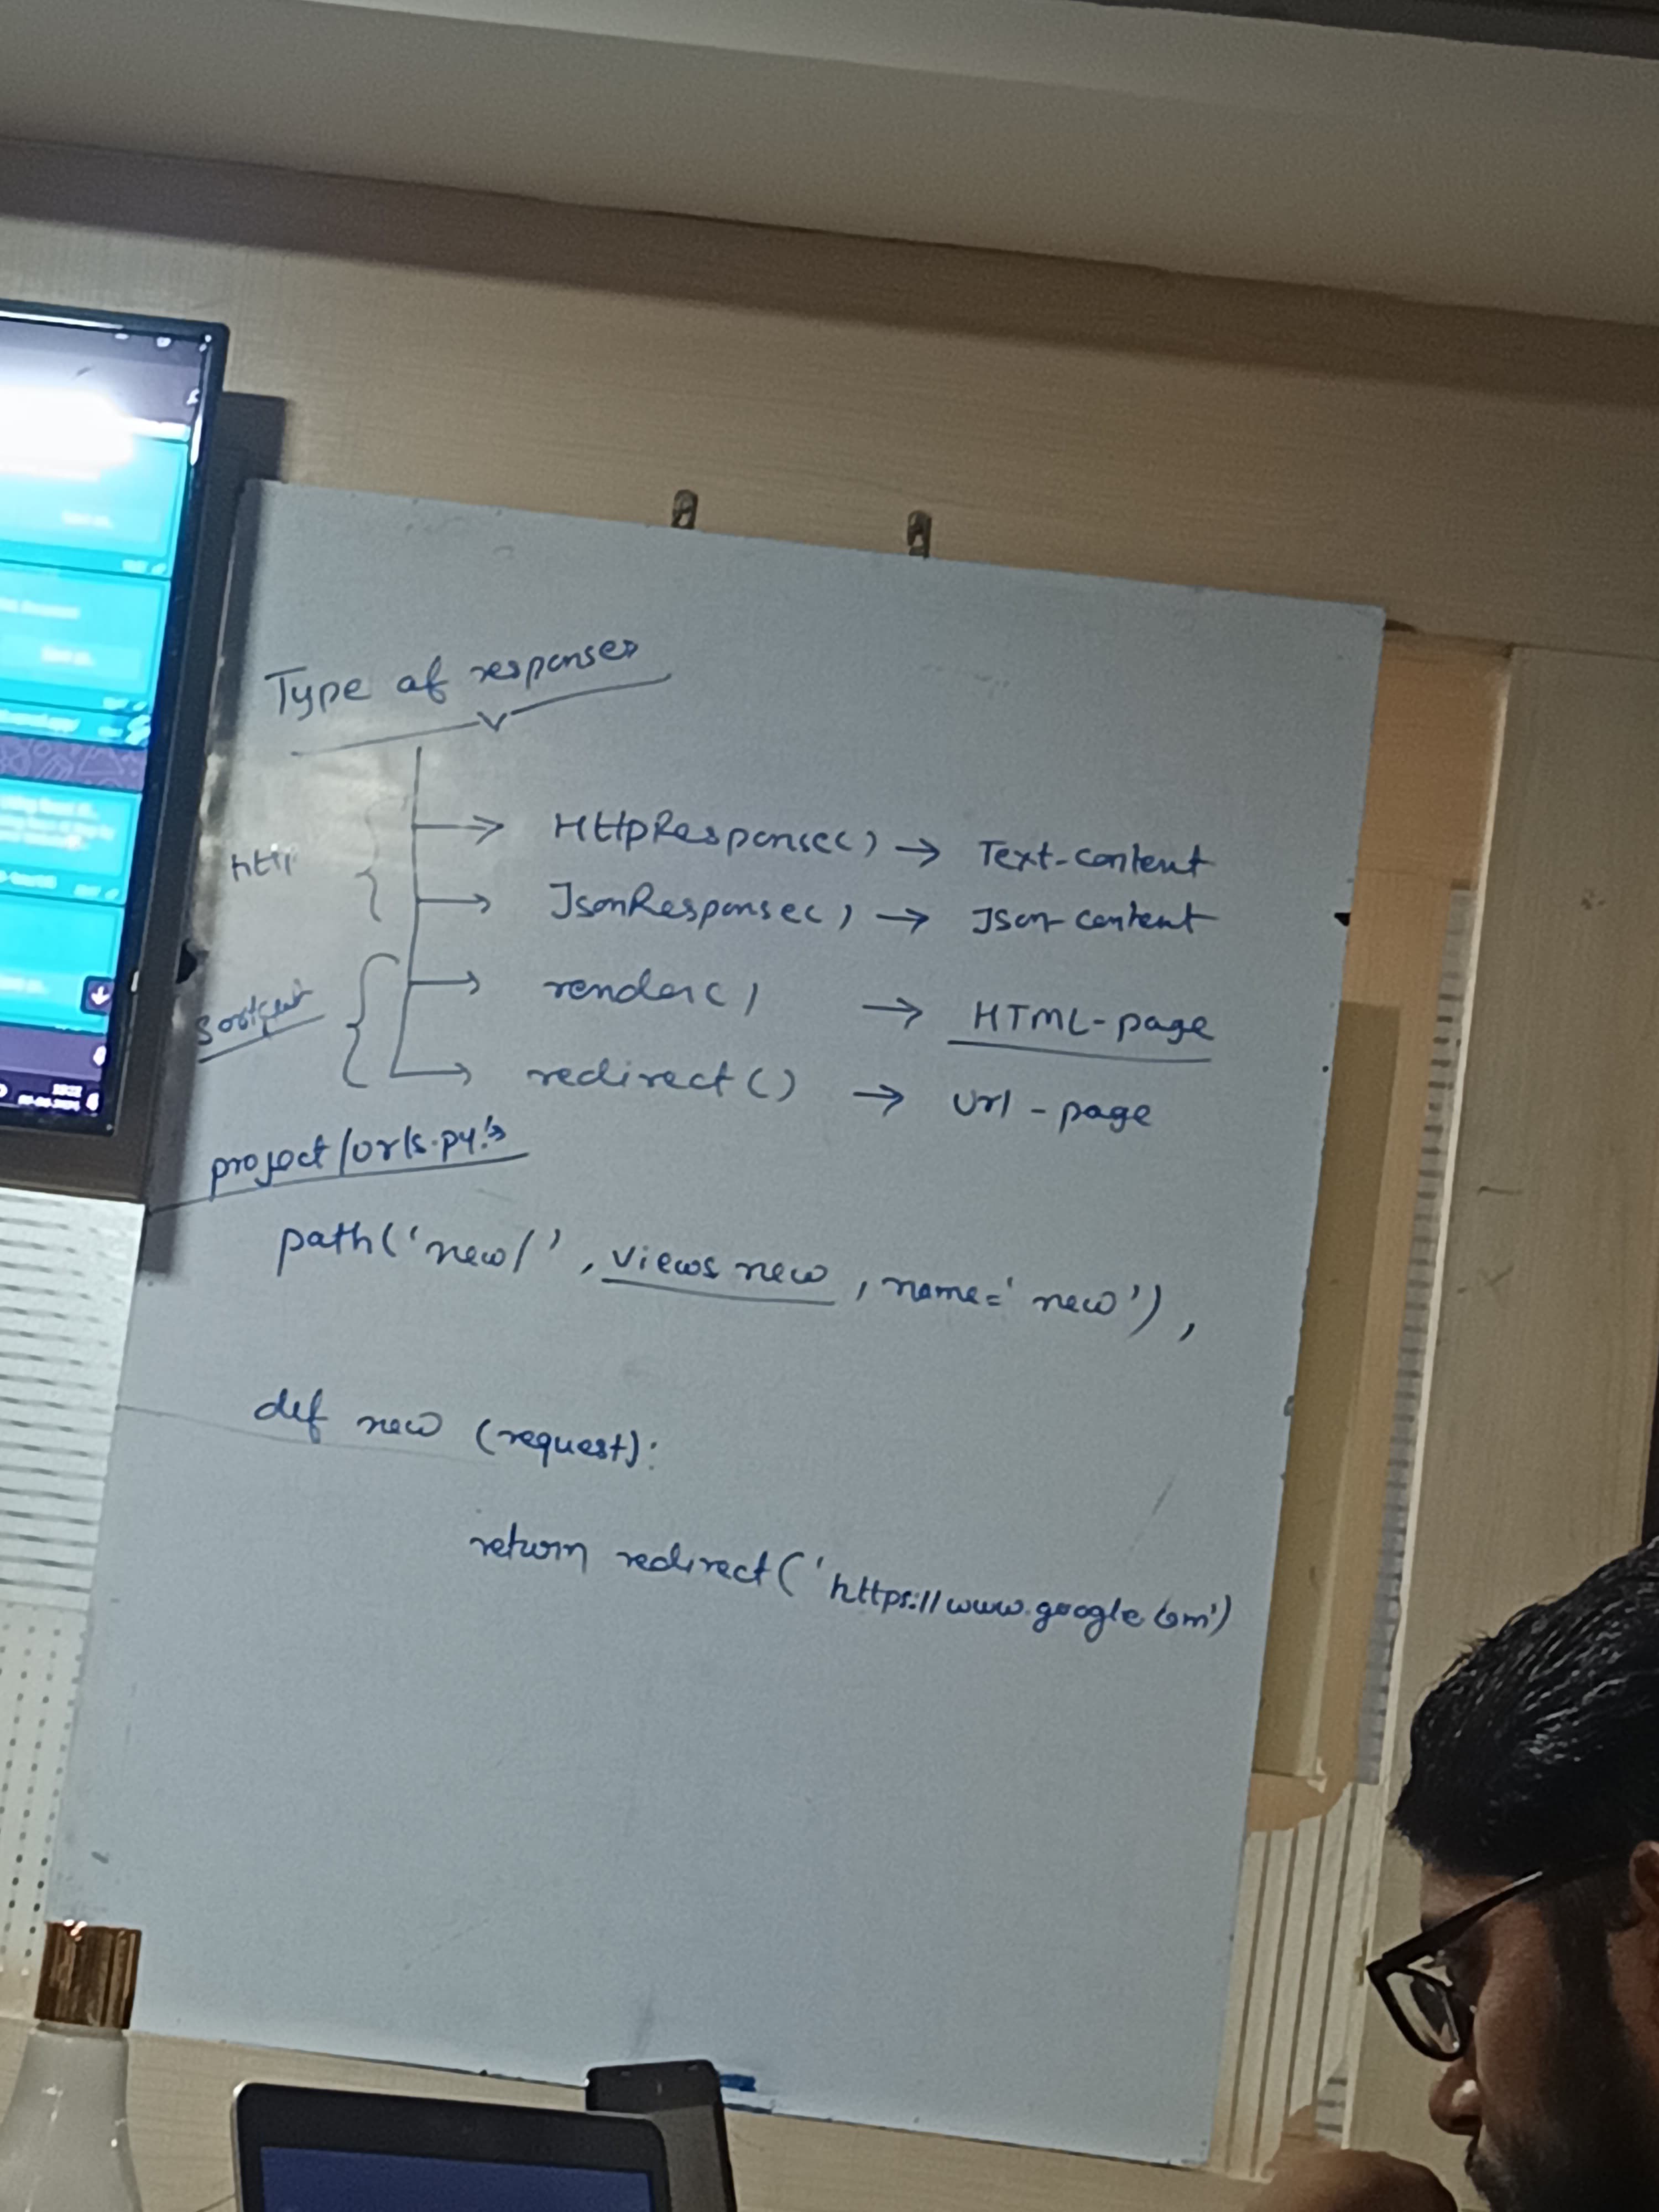 Type of responses
http
HttpResponse() → Text-content
JsonResponse() → Json content
render() → HTML-page
redirect() → Url-page
project/urls.py:
path('new/', views new, name='new'),
def new (request):
return redirect('https://www.google.com')